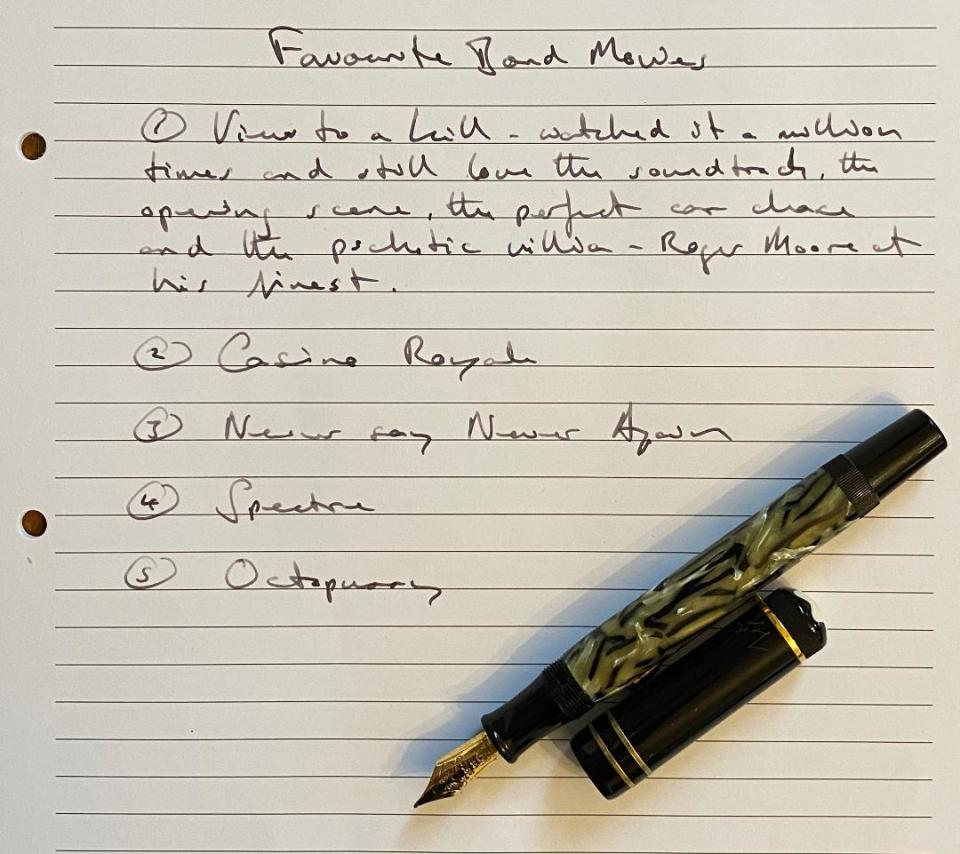 Favourite Bond Movies
① View to a kill - watched it a million
times and still love the soundtrack, the
opening scene, the perfect car chace
and the villian - Roger Moore at
his finest.
② Casino Royale
③ Never say Never Again
④ Spectre
⑤ Octopussy